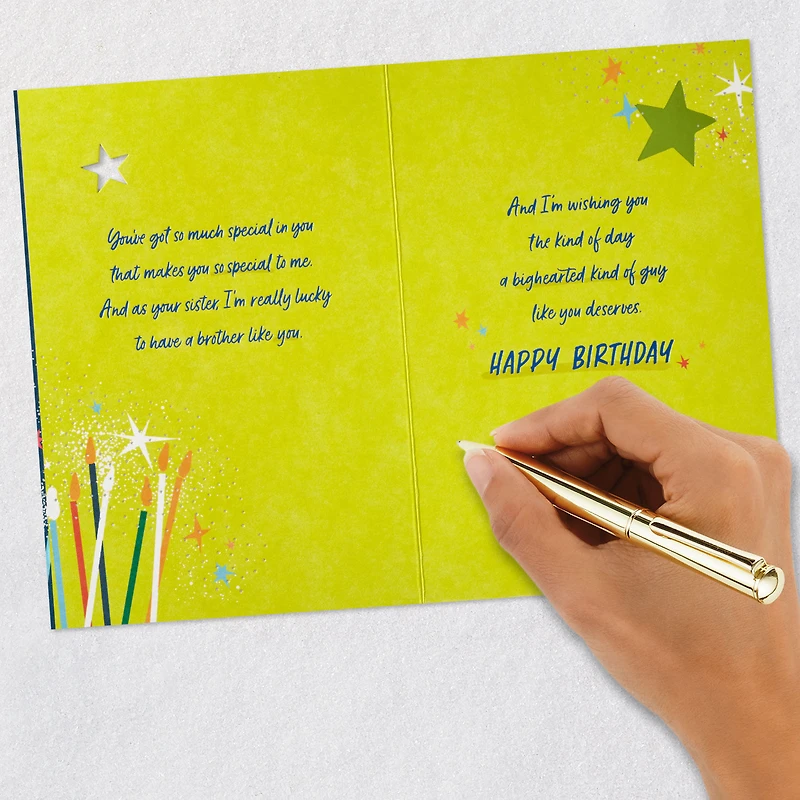 You've got so much special in you
that makes you so special to me.
And as your sister, I'm really lucky
to have a brother like you.
And I'm wishing you
the kind of day
a bighearted kind of guy
like you deserves.
HAPPY BIRTHDAY